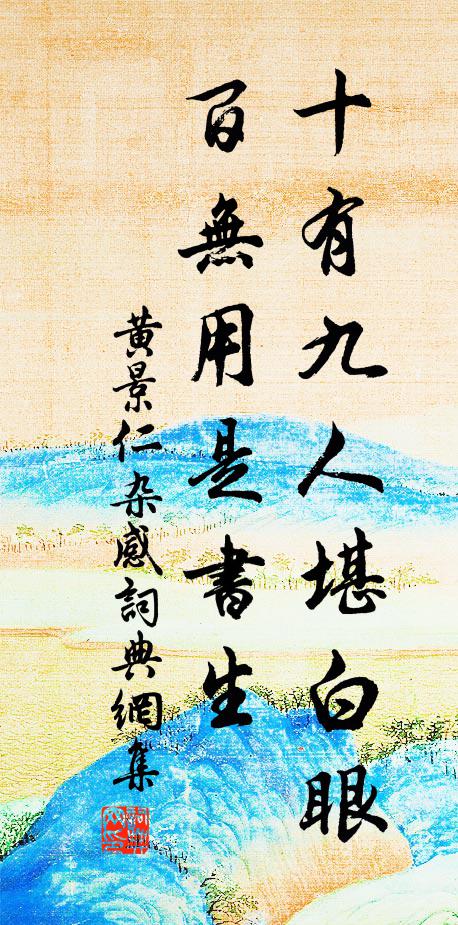 十有九人堪白眼
百無用是書生
黄景仁杂感詞典網集